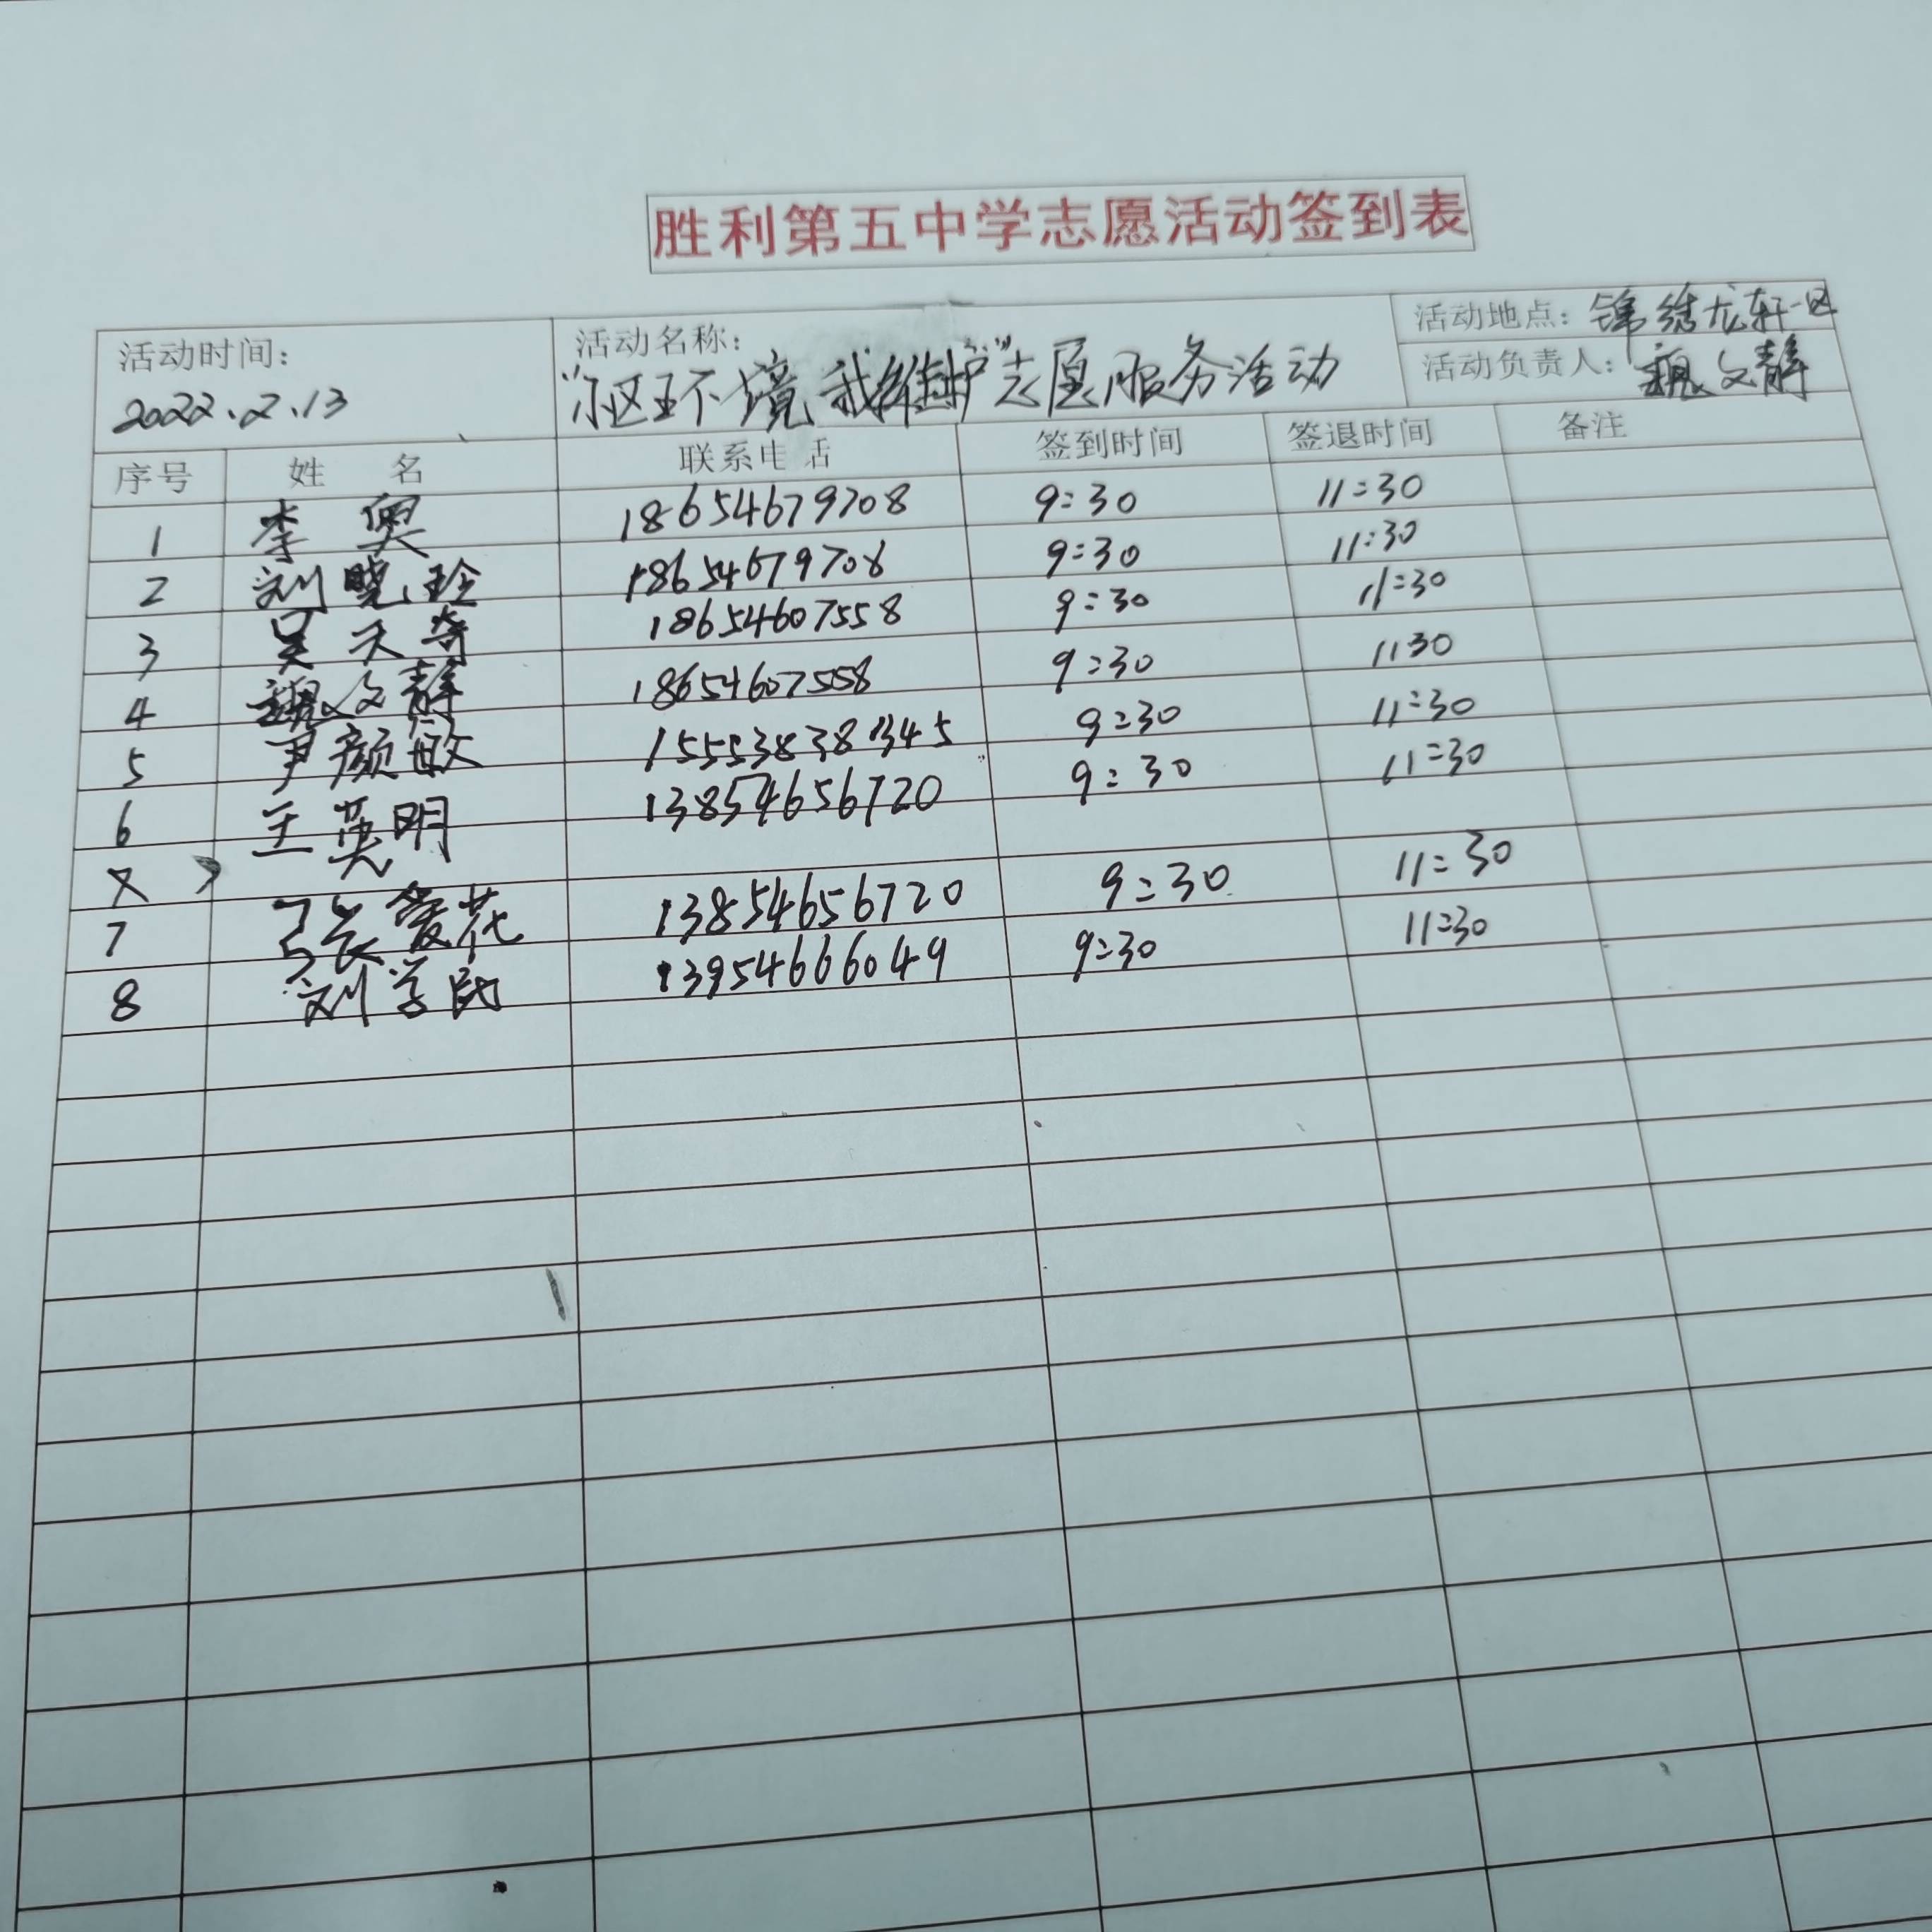 胜利第五中学志愿活动签到表
活动时间: 活动名称: 活动地点: 锦绣龙轩一区
2022.2.13 "小区环境 我维护"志愿服务活动 活动负责人: 魏文静
序号 姓 名 联系电话 签到时间 签退时间 备注
1 李奥 18654679708 9:30 11:30
2 刘晓玲 18654679708 9:30 11:30
3 吴天奇 18654607558 9:30 11:30
4 魏文静 18654607558 9:30 1130
5 尹颜敏 9:30 11:30
6 王英明 13854656720 9:30 11:30
7 张爱花 13854656720 9:30 11:30
8 刘学民 13954666049 9:30 11:30